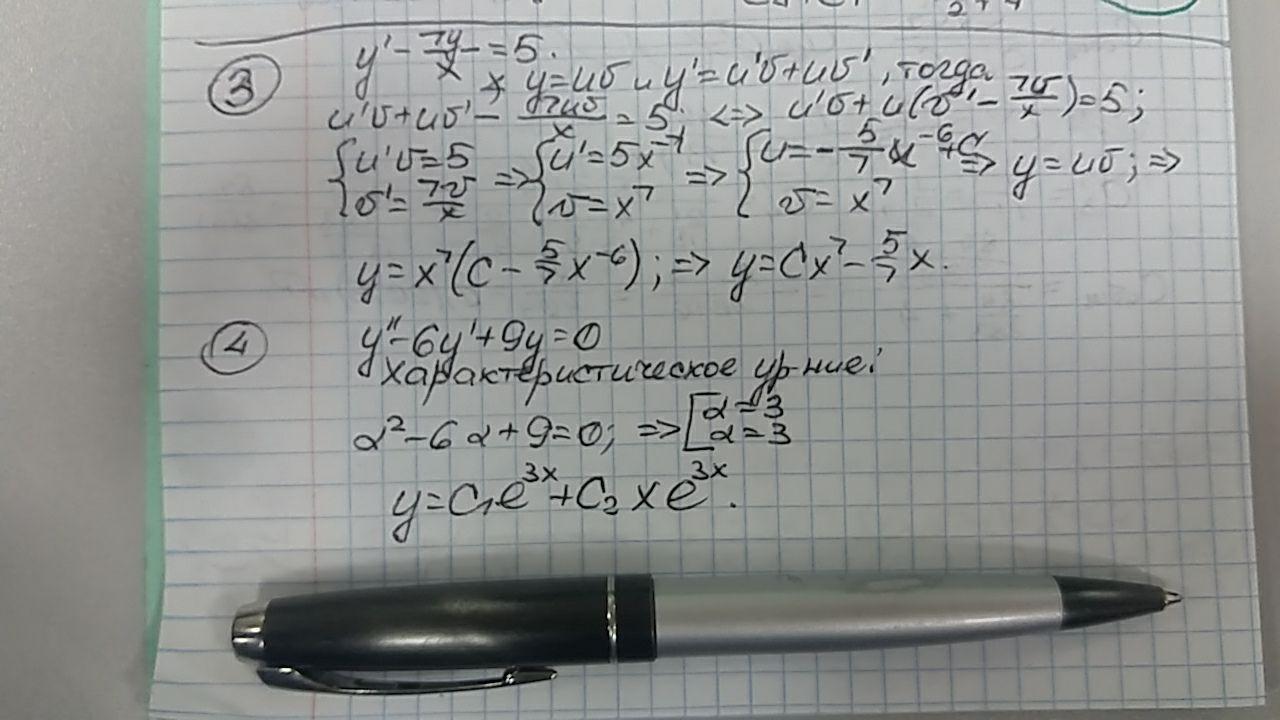 ③ y' - 7y/x = 5.
y = uv и y' = u'v + uv', тогда
u'v + uv' - 7uv/x = 5 <=> u'v + u(v' - 7v/x) = 5;
{u'v = 5 {u' = 5x⁻⁷ {u = -5/7 x⁻⁶ + C
{v' = 7v/x => {v = x⁷ => {v = x⁷ => y = uv; =>
y = x⁷(C - 5/7 x⁻⁶); => y = Cx⁷ - 5/7 x.
④ y'' - 6y' + 9y = 0
Характеристическое ур-ние:
α² - 6α + 9 = 0; => [α = 3
[α = 3
y = C₁e³ˣ + C₂xe³ˣ.